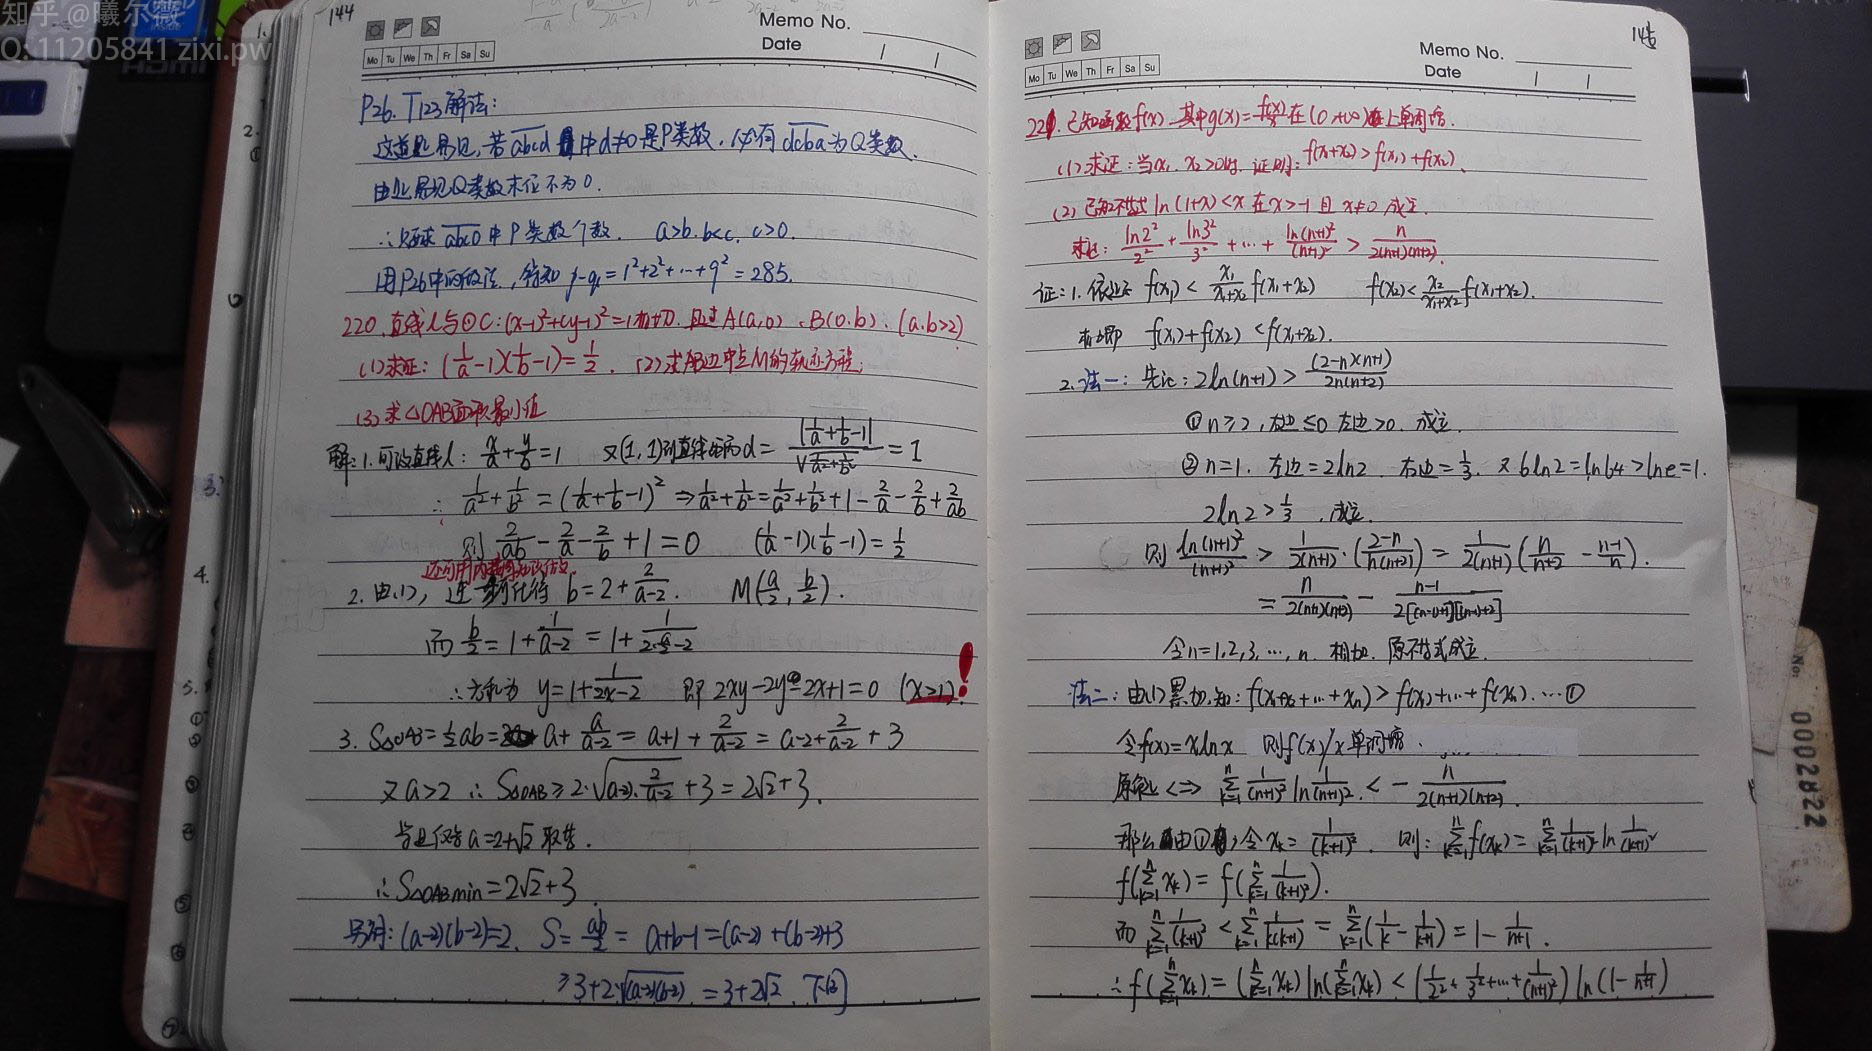 知乎 @曦尔薇
Q: 11205841 zixi.pw
144
Memo No.
Date
Mo Tu We Th Fr Sa Su
P26. T123解法:
这道题易见, 若abcd 中d≠0是P类数, 必有dcba为Q类数.
由此易见Q类数末位不为0.
∴只须求abc0中P类数个数. a>b. b<c. c>0.
用P26中的做法, 得知 p-q = 1²+2²+…+9² = 285.
220. 直线l与⊙C: (x-1)²+(y-1)²=1相切. 且过A(a,0)、B(0,b). (a.b>2)
(1)求证: (1/a-1)(1/b-1)=1/2. (2)求AB边中点M的轨迹方程;
(3)求△OAB面积最小值
解: 1. 可设直线l: x/a+y/b=1 又(1,1)到直线距离为d= |1/a+1/b-1|/√(1/a²+1/b²) = 1
∴ 1/a²+1/b² = (1/a+1/b-1)² ⇒ 1/a²+1/b² = 1/a²+1/b²+1-2/a-2/b+2/ab
则 2/ab-2/a-2/b+1=0 (1/a-1)(1/b-1)=1/2
2. 由(1), 进一步化得 b=2+2/(a-2). M(a/2, b/2).
而 b/2=1+1/(a-2)=1+1/(2·a/2-2)
∴方程为 y=1+1/(2x-2) 即 2xy-2y-2x+1=0 (x>1)!
3. S△OAB=½ab= a+a/(a-2)=a+1+2/(a-2)=a-2+2/(a-2)+3
又a>2 ∴ S△OAB≥2·√((a-2)·2/(a-2))+3=2√2+3.
当且仅当a=2+√2取等.
∴S△OABmin=2√2+3.
另解: (a-2)(b-2)=2. S=ab/2=a+b-1=(a-2)+(b-2)+3
≥3+2·√((a-2)(b-2))=3+2√2. 下同
Memo No.
Date
Mo Tu We Th Fr Sa Su
221. 已知函数f(x). 其中g(x)=f(x)/x在(0,+∞)上单调增.
(1)求证: 当x₁, x₂>0时. 证明: f(x₁+x₂)>f(x₁)+f(x₂).
(2)已知不等式ln(1+x)<x在x>-1且x≠0成立.
求证: ln2²/2²+ln3²/3²+…+ln(n+1)²/(n+1)²>n/(2(n+1)(n+2)).
证: 1. 依题意 f(x₁)<x₁/(x₁+x₂)f(x₁+x₂) f(x₂)<x₂/(x₁+x₂)f(x₁+x₂).
相加即 f(x₁)+f(x₂)<f(x₁+x₂).
2. 法一: 先证: 2ln(n+1)>(2-n)(n+1)/(2n(n+2))
① n≥2, 右边≤0 左边>0. 成立.
② n=1. 左边=2ln2. 右边=1/3. 又6ln2=ln64>lne=1.
2ln2>1/3. 成立.
则 ln(n+1)²/(n+1)²>1/(2(n+1))·((2-n)/(n(n+2)))=1/(2(n+1))(n/(n+2)-(n-1)/n).
=n/(2(n+1)(n+2))-(n-1)/(2[(n-1)+1][(n-1)+2])
令n=1,2,3,…,n. 相加. 原不等式成立.
法二: 由(1)累加, 知: f(x₁+x₂+…+xₙ)>f(x₁)+…+f(xₙ). …①
令f(x)=xlnx 则f(x)/x单调增.
原命题 <=> Σₖ₌₁ⁿ 1/(n+1)² ln 1/(n+1)²<-n/(2(n+1)(n+2)).
那么由①, 令xₖ=1/(k+1)². 则: Σₖ₌₁ⁿ f(xₖ)=Σₖ₌₁ⁿ 1/(k+1)² ln 1/(k+1)²
f(Σₖ₌₁ⁿ xₖ)=f(Σₖ₌₁ⁿ 1/(k+1)²).
而 Σₖ₌₁ⁿ 1/(k+1)²<Σₖ₌₁ⁿ 1/(k(k+1))=Σₖ₌₁ⁿ(1/k-1/(k+1))=1-1/(n+1).
∴f(Σₖ₌₁ⁿ xₖ)=(Σₖ₌₁ⁿ xₖ)ln(Σₖ₌₁ⁿ xₖ)<(1/2²+1/3²+…+1/(n+1)²)ln(1-1/(n+1))
No:
0002822